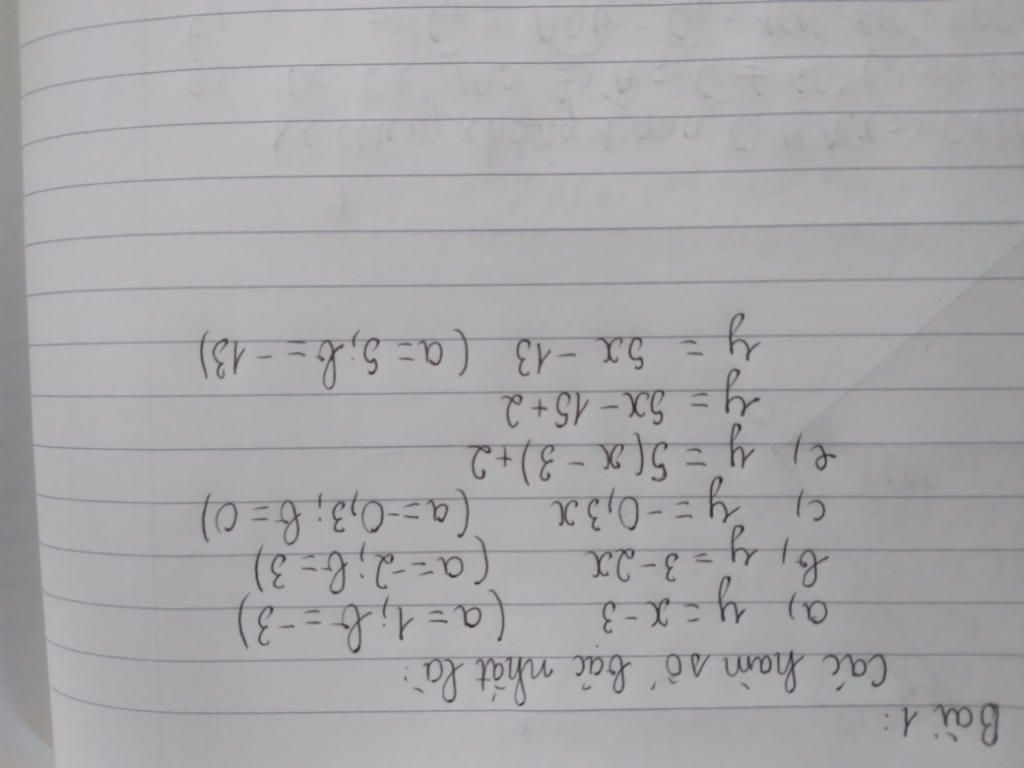 Bài 1:
Các hàm số bậc nhất là:
a, y = x - 3 (a = 1; b = -3)
b, y = 3 - 2x (a = -2; b = 3)
c, y = -0,3x (a = -0,3; b = 0)
e, y = 5(x - 3) + 2
y = 5x - 15 + 2
y = 5x - 13 (a = 5; b = -13)